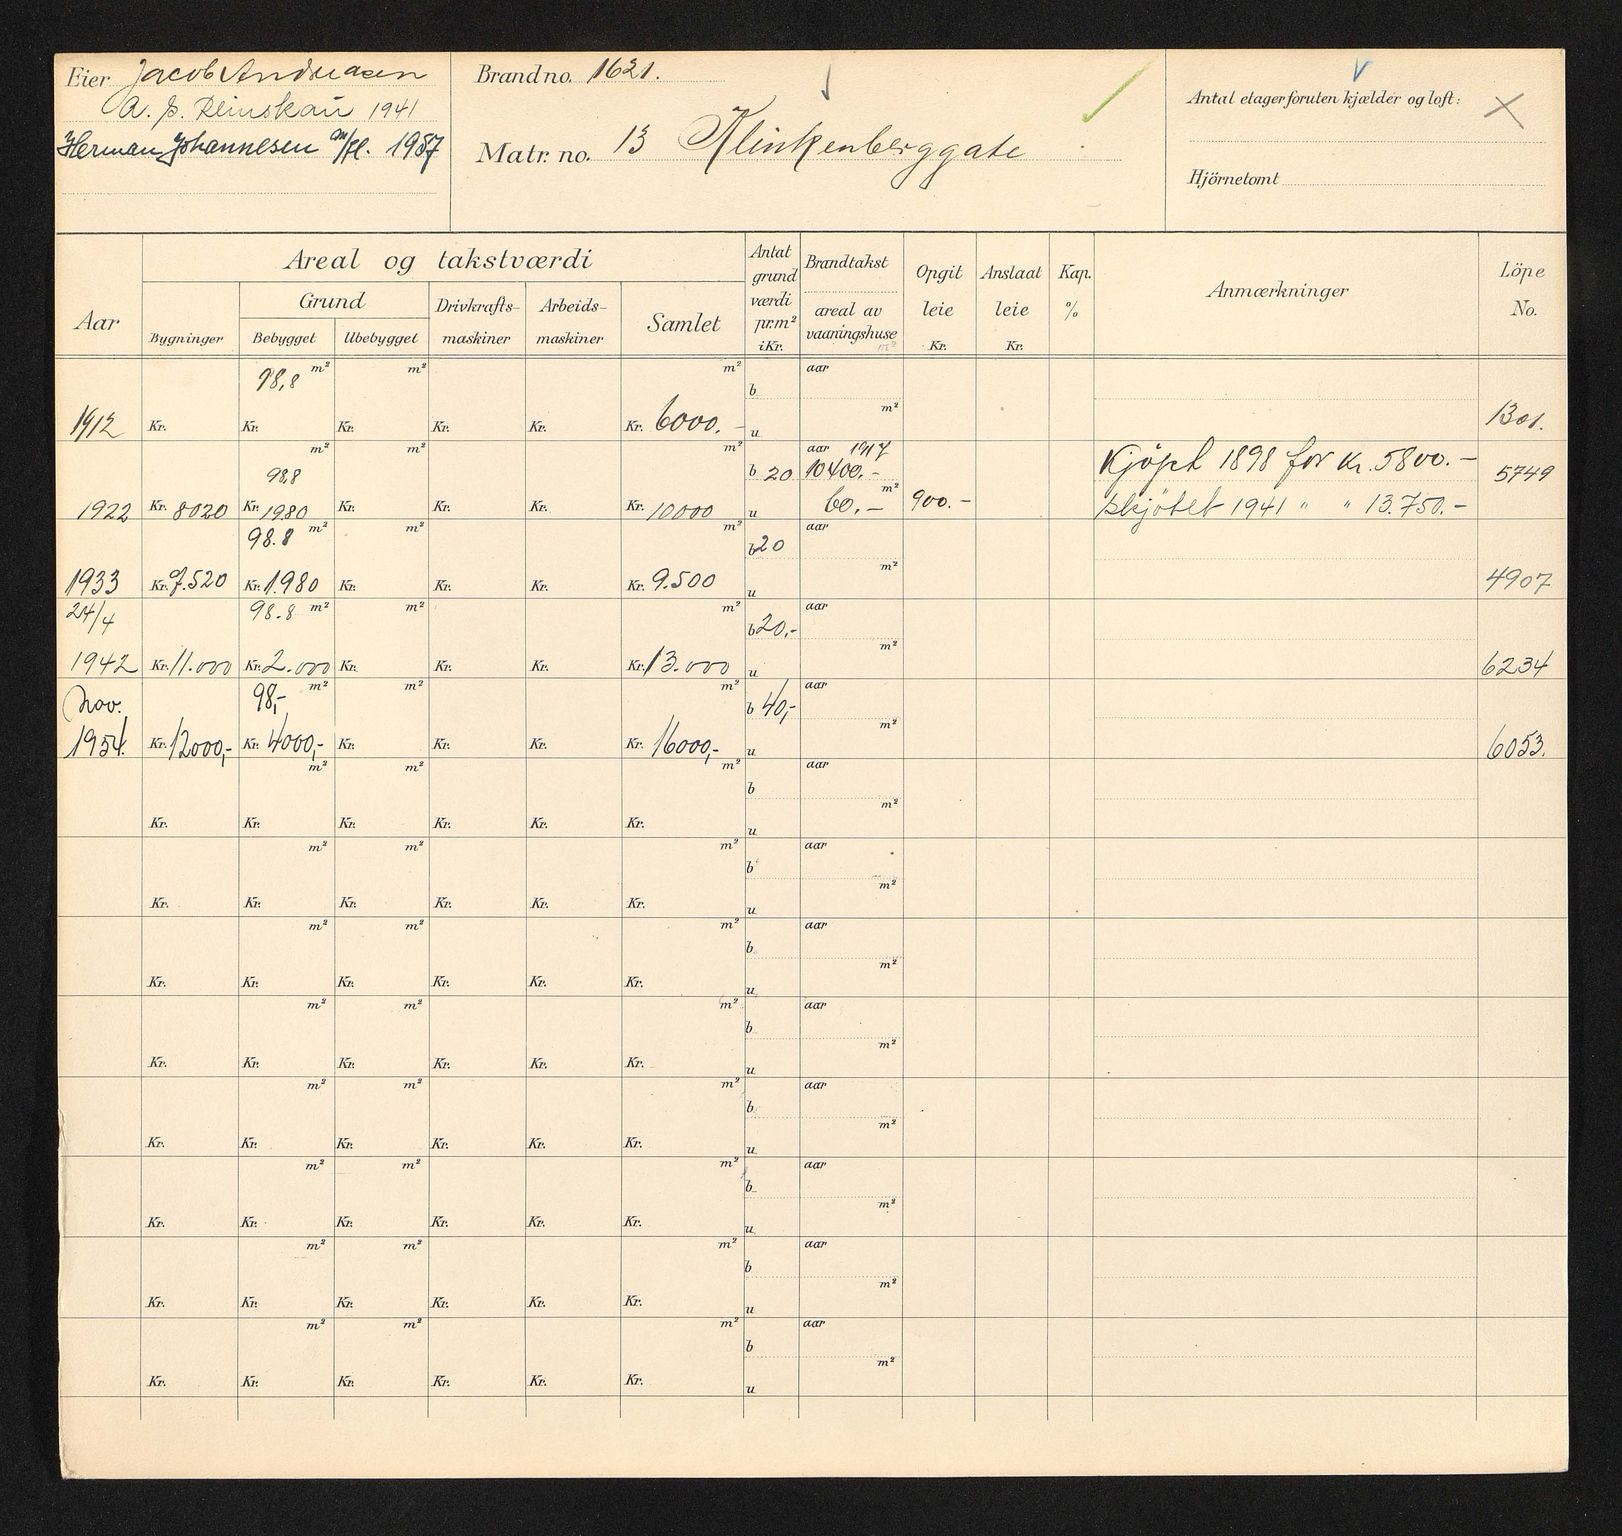 Eier Jacob Andreasen
A. S. Reinskau 1941
Herman Johannesen m/fl. 1957
Brandno. 1621.
Matr. no. 13 Klinkenberggate
Antal etager foruten kjælder og loft:
Hjörnetomt
Aar
Areal og takstværdi
Grund
Bygninger Bebygget Ubebygget
Drivkrafts-maskiner
Arbeids-maskiner
Samlet
Antat grund værdi pr.m² i Kr.
Brandtakst
areal av vaaningshuse m²
Opgit leie Kr.
Anslaat leie Kr.
Kap. %
Anmærkninger
Löpe No.
98,8 m² m² m² b aar
1912 Kr. Kr. Kr. Kr. Kr. Kr. 6000.- u m² 1301.
98,8 m² m² m² b 20 aar 1917 10400.- Kjøpt 1898 for Kr. 5800.- 5749
1922 Kr. 8020 Kr. 1980 Kr. Kr. Kr. Kr. 10000 u 60.- m² 900.- Skjøtet 1941 " " 13.750.-
98.8 m² m² m² b 20 aar
1933 Kr. 7.520 Kr. 1.980 Kr. Kr. Kr. Kr. 9.500 u m² 4907
24/4 98.8 m² m² m² b 20,- aar
1942 Kr. 11.000 Kr. 2.000 Kr. Kr. Kr. Kr. 13.000 u m² 6234
Nov. 98,- m² m² m² b 40,- aar
1954. Kr. 12000,- Kr. 4000,- Kr. Kr. Kr. Kr. 16000,- u m² 6053.
m² m² m² b aar
Kr. Kr. Kr. Kr. Kr. Kr. u m²
m² m² m² b aar
Kr. Kr. Kr. Kr. Kr. Kr. u m²
m² m² m² b aar
Kr. Kr. Kr. Kr. Kr. Kr. u m²
m² m² m² b aar
Kr. Kr. Kr. Kr. Kr. Kr. u m²
m² m² m² b aar
Kr. Kr. Kr. Kr. Kr. Kr. u m²
m² m² m² b aar
Kr. Kr. Kr. Kr. Kr. Kr. u m²
m² m² m² b aar
Kr. Kr. Kr. Kr. Kr. Kr. u m²
m² m² m² b aar
Kr. Kr. Kr. Kr. Kr. Kr. u m²